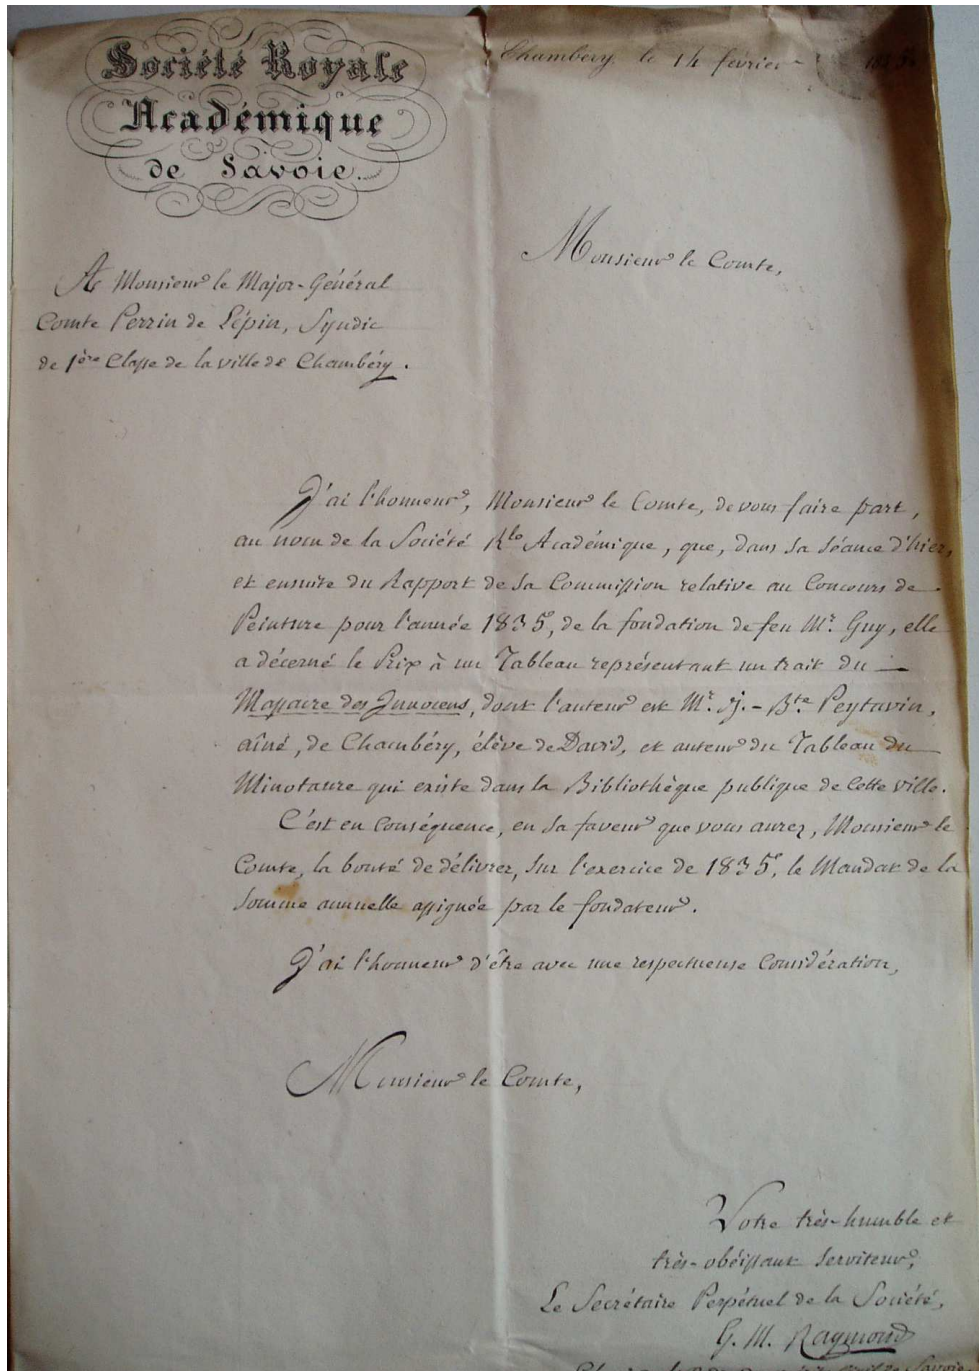 Société Royale
Académique
de Savoie.
Chambéry, le 14 février 1835.
Monsieur le Comte,
A Monsieur le Major-Général
Comte Perrin de Lépin, Syndic
de 1ère Classe de la ville de Chambéry.
J'ai l'honneur, Monsieur le Comte, de vous faire part,
au nom de la Société Rle Académique, que, dans sa séance d'hier,
et ensuite du Rapport de sa Commission relative au Concours de
Peinture pour l'année 1835, de la fondation de feu Mr. Guy, elle
a décerné le Prix à un Tableau représentant un trait du —
Massacre des Innocens, dont l'auteur est Mr. J.-Bte Peytavin,
aîné, de Chambéry, élève de David, et auteur du Tableau du —
Minotaure qui existe dans la Bibliothèque publique de cette ville.
C'est en conséquence, en sa faveur que vous aurez, Monsieur le
Comte, la bonté de délivrer, sur l'exercice de 1835, le Mandat de la
somme annuelle assignée par le fondateur.
J'ai l'honneur d'être avec une respectueuse considération,
Monsieur le Comte,
Votre très-humble et
très-obéissant serviteur,
Le Secrétaire Perpétuel de la Société,
G. M. Raymond